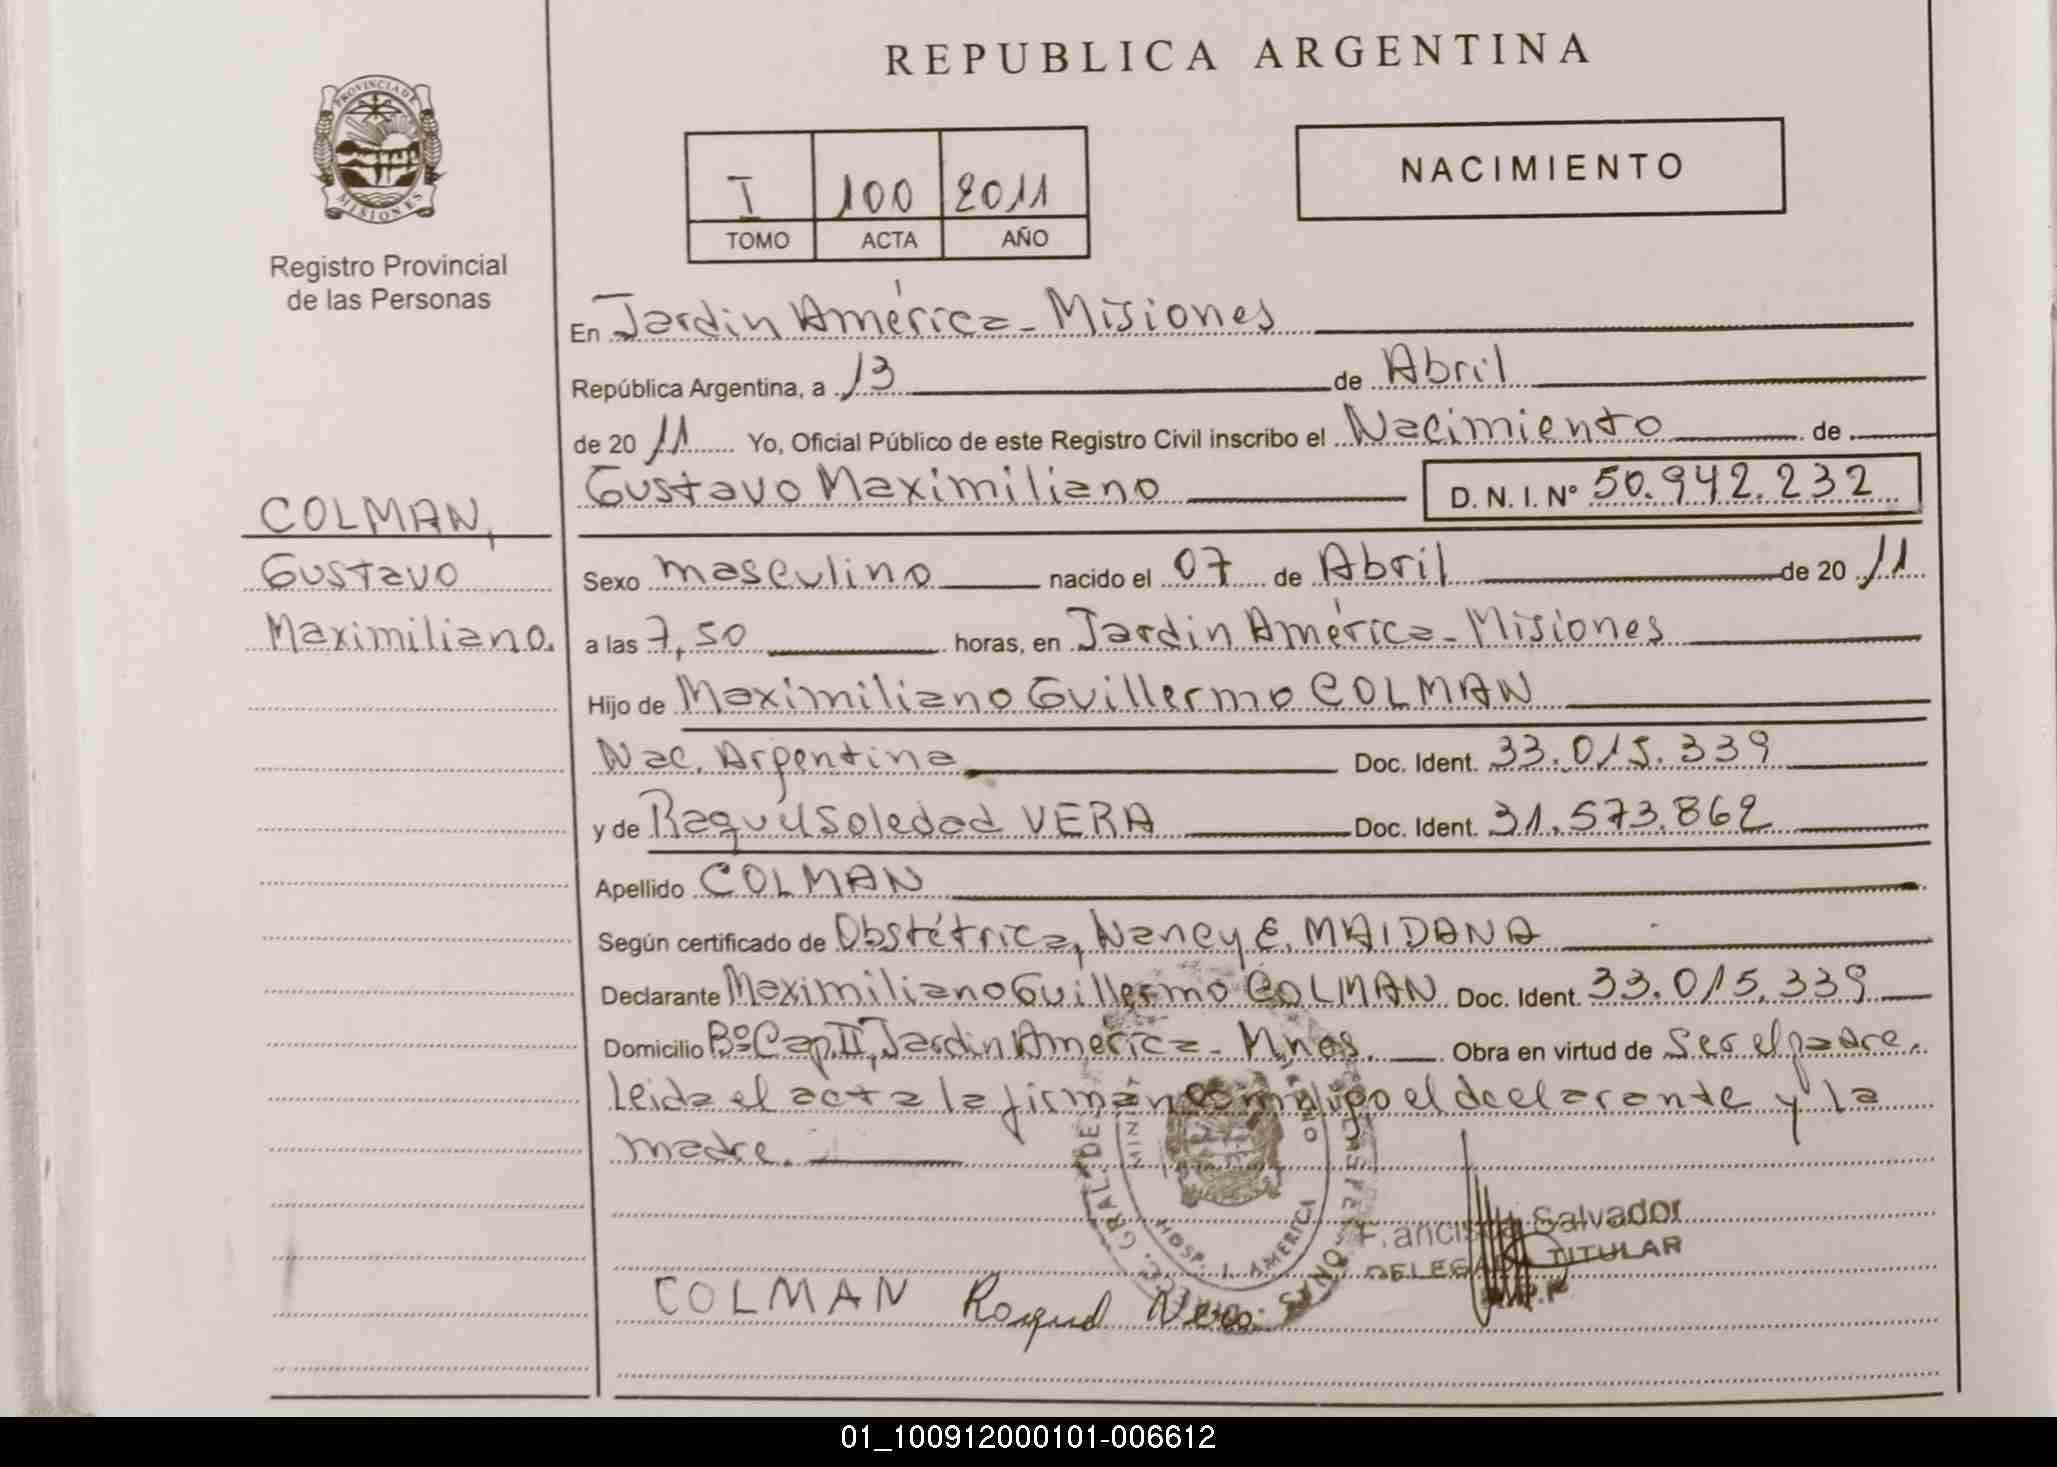 REPUBLICA ARGENTINA
PROVINCIA DE
MISIONES
Registro Provincial
de las Personas
I 100 2011
TOMO ACTA AÑO
NACIMIENTO
En Jardin América - Misiones
República Argentina, a 13 de Abril
de 2011 Yo, Oficial Público de este Registro Civil inscribo el Nacimiento de
Gustavo Maximiliano D. N. I. Nº 50.942.232
COLMAN,
Gustavo
Maximiliano.
Sexo masculino nacido el 07 de Abril de 2011
a las 7,50 horas, en Jardin América - Misiones
Hijo de Maximiliano Guillermo COLMAN
Nac. Argentina Doc. Ident. 33.015.339
y de Raquel Soledad VERA Doc. Ident. 31.573.862
Apellido COLMAN
Según certificado de Obstétrica, Nancy E. MAIDANA
Declarante Maximiliano Guillermo COLMAN Doc. Ident. 33.015.339
Domicilio Bº Cap. II, Jardin América - Mnes. Obra en virtud de ser el padre.
Leida el acta la firman conmigo el declarante y la
madre.
HOSP. J. AMERICA
Francisco Salvador
DELEGADO TITULAR
R.P.P
COLMAN Raquel Vera
01_100912000101-006612